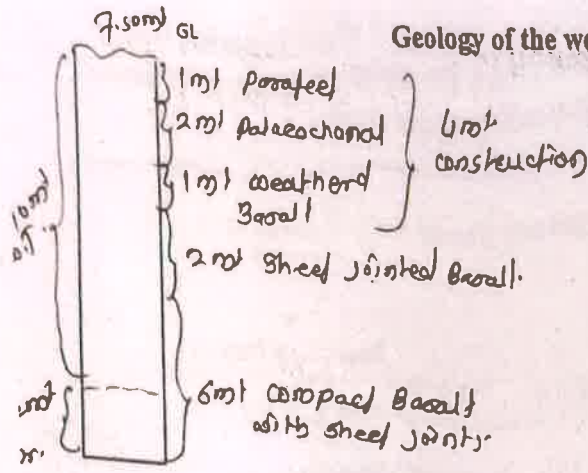 7.50mt GL
Geology of the we
1mt parafeel
2mt palaeochanal
1mt weatherd
Basalt
4mt
construction
2mt Sheet jointed Basalt.
10mt
6mt compact Basalt
with sheet joints.